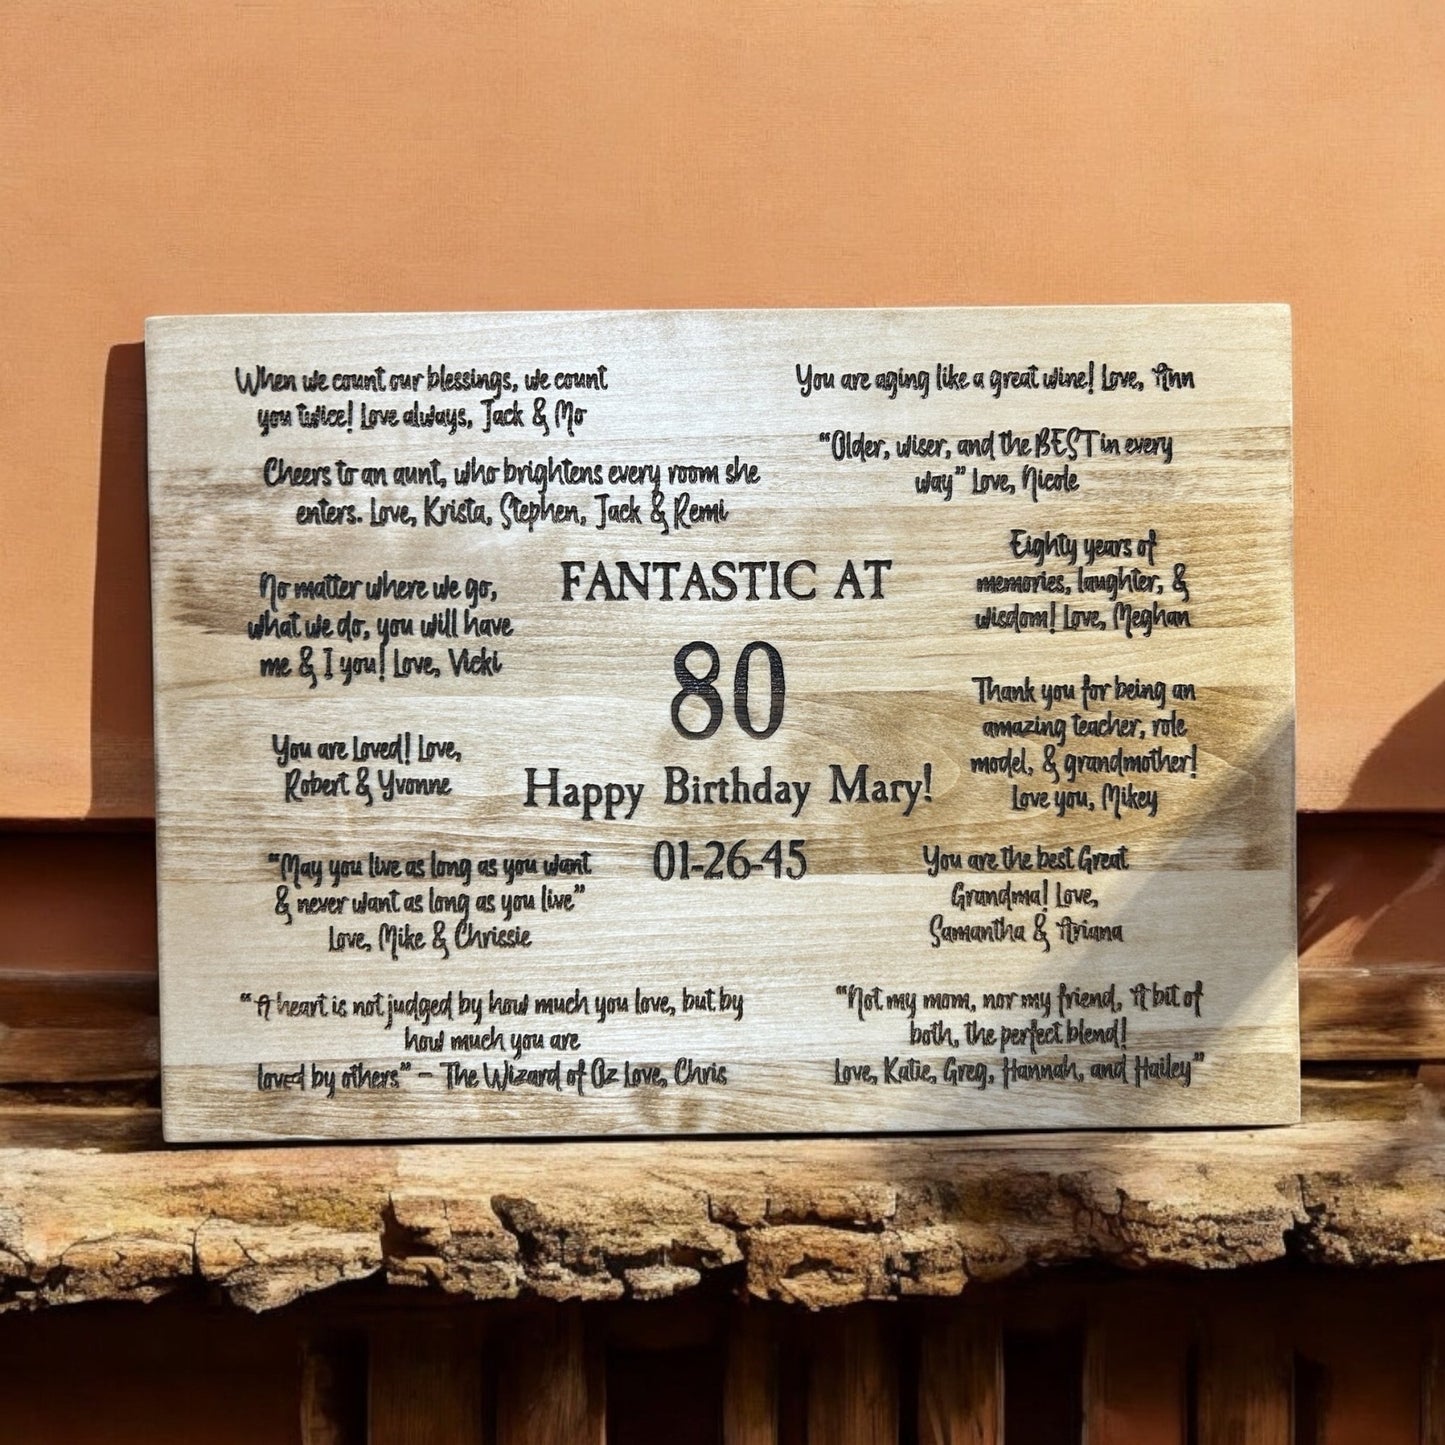 When we count our blessings, we count
you twice! Love always, Jack & Mo
Cheers to an aunt, who brightens every room she
enters. Love, Krista, Stephen, Jack & Remi
No matter where we go,
what we do, you will have
me & I you! Love, Vicki
You are Loved! Love,
Robert & Yvonne
"May you live as long as you want
& never want as long as you live"
Love, Mike & Chrissie
"A heart is not judged by how much you love, but by
how much you are
loved by others" - The Wizard of Oz Love, Chris
FANTASTIC AT
80
Happy Birthday Mary!
01-26-45
You are aging like a great wine! Love, Ann
"Older, wiser, and the BEST in every
way" Love, Nicole
Eighty years of
memories, laughter, &
wisdom! Love, Meghan
Thank you for being an
amazing teacher, role
model, & grandmother!
Love you, Mikey
You are the best Great
Grandma! Love,
Samantha & Ariana
"Not my mom, nor my friend, A bit of
both, the perfect blend!
Love, Katie, Greg, Hannah, and Hailey"